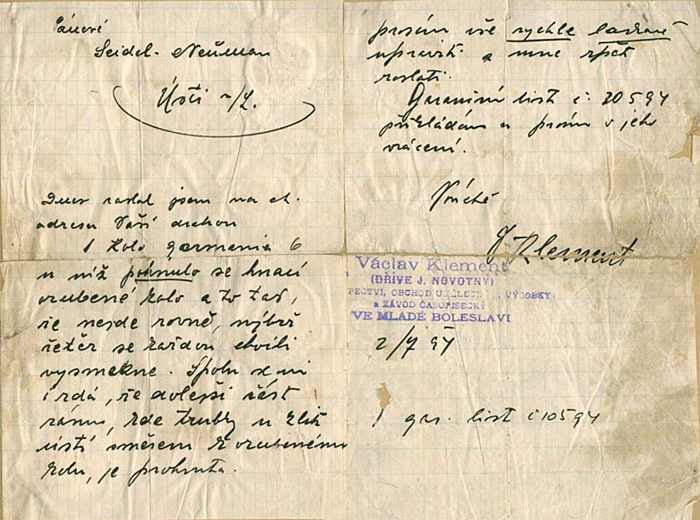 Pánové
Seidel - Neuman
Ústí n/L.
Dnes zaslal jsem na ct.
adresu Vaší drahou
1 Kolo Germania 6
u níž pohnulo se hnací
ozubené kolo a to tak,
že nejde rovně, nýbrž
řetěz se každou chvíli
vysmekne. Spolu se mi
i zdá, že dolejší část
rámu, kde trubky u klik
ústí směrem k ozubenému
kolu, je prohnuta.
prosím vše rychle laskavě
upraviti a mne zpět
zaslati.
Garanční list č. 20594
přikládám a prosím o jeho
vrácení.
V úctě
V Klement
Václav Klement
(DŘÍVE J. NOVOTNÝ)
KNIHKUPECTVÍ, OBCHOD UMĚLECKÝMI VÝROBKY
a ZÁVOD ČASOPISECKÝ
VE MLADÉ BOLESLAVI
2/7 94
1 gar. list č 10594